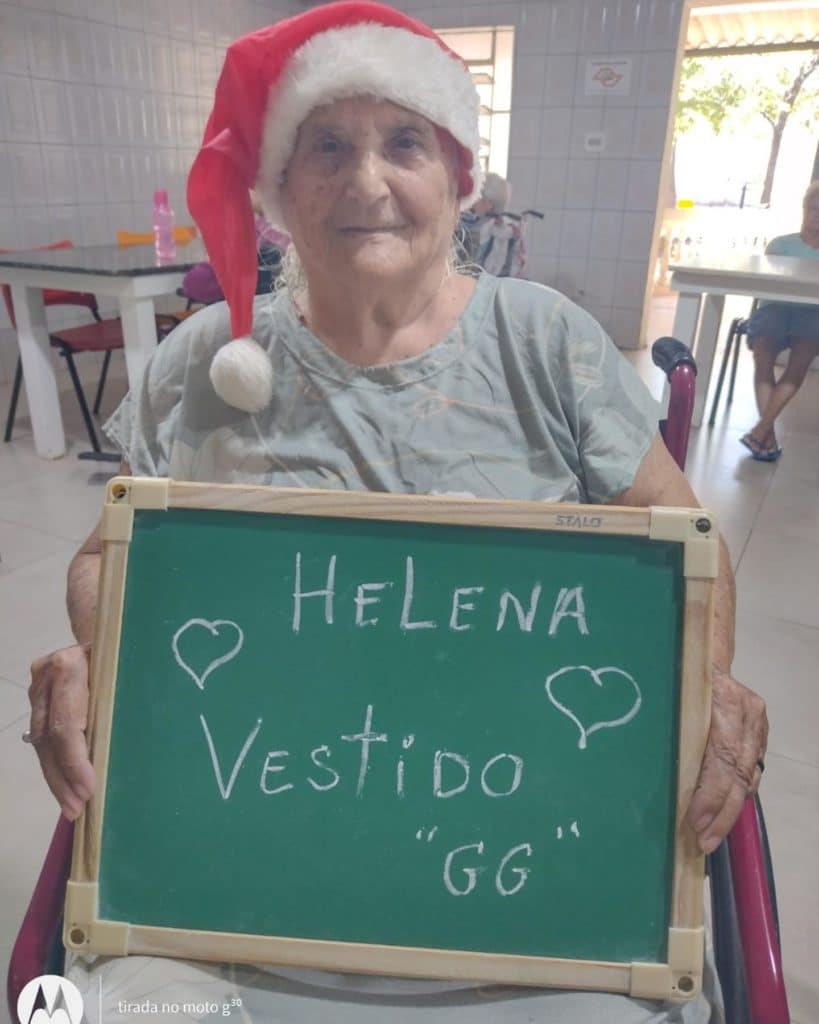 STALO
HELENA
VESTIDO
"GG"
tirada no moto g³⁰